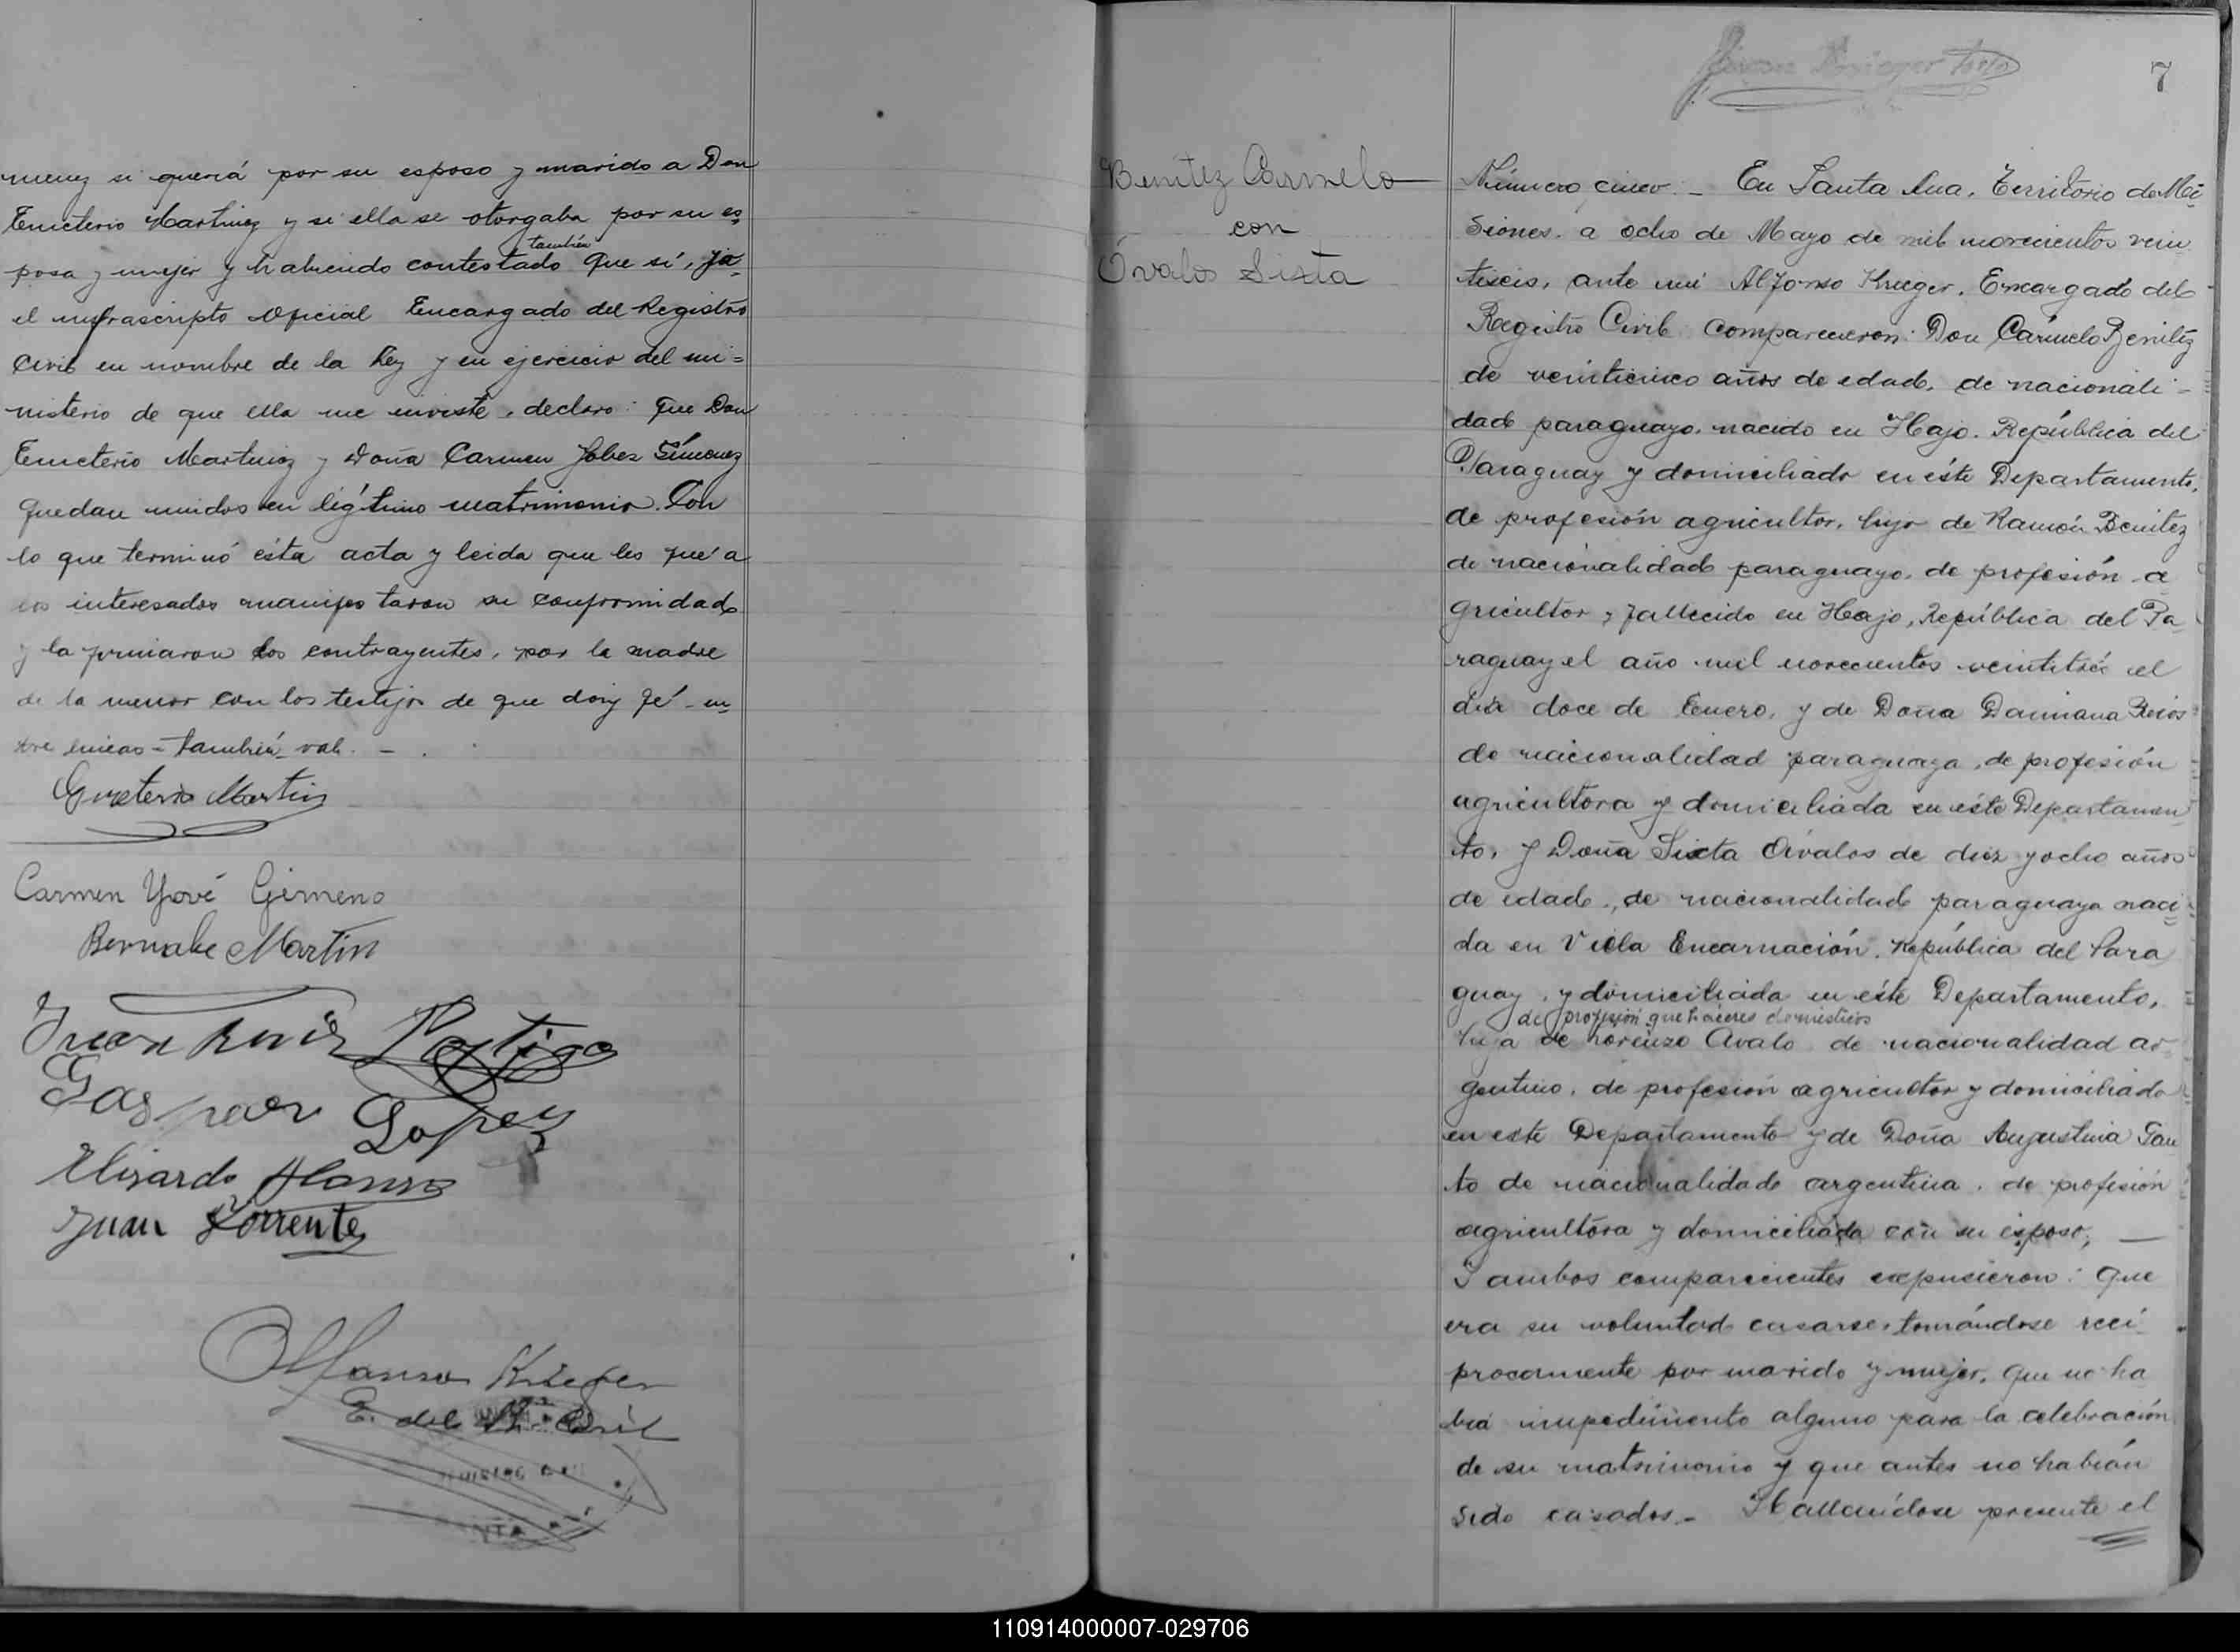 menez si quería por su esposo y marido a Don
Emeterio Martinez y si ella se otorgaba por su es
también
posa y mujer y habiendo contestado que si, yo
el infrascripto oficial Encargado del Registro
Civil en nombre de la Ley y en ejercicio del mi=
nisterio de que ella me inviste, declaro: que Don
Emeterio Martinez y Doña Carmen Gimenez
quedan unidos en legítimo matrimonio. Con
lo que terminó ésta acta y leida que les fué a
los interesados manifestaron su conformidad
y la firmaron los contrayentes, por la madre
de la menor con los testigos de que doiy fé - en
tre lineas - también vale. -
Emeterio Martin
Carmen Yové Gimeno
Bernabe Martin
Juan Ruiz Postigo
Gaspar Lopez
Elisardo Alonso
Juan Torrente
Alfonso Krieger
E. del R. Civil
7
Benitez Carmelo
con
Óvalos Sixta
Número cinco. - En Santa Ana, Territorio de Mi
siones, a ocho de Mayo de mil novecientos vein
tiseis, ante mi Alfonso Krieger, Encargado del
Registro Civil comparecieron: Don Cármelo Benitez
de veinticinco años de edad, de nacionali-
dad paraguayo, nacido en Hajo. República del
Paraguay y domiciliado en éste Departamento,
de profesión agricultor, hijo de Ramón Benitez
de nacionalidad paraguayo, de profesión a
gricultor, fallecido en Hajo, República del Pa
raguay el año mil novecientos veintitrés el
día doce de Enero, y de Doña Damiana Rios
de nacionalidad paraguaya, de profesión
agricultora y domiciliada en éste Departamen
to, y Doña Sixta Óvalos de diez y ocho años
de edad, de nacionalidad paraguaya naci
da en Villa Encarnación, República del Para
guay, y domiciliada en éste Departamento,
de profesión quehaceres domésticos
hija de Lorenzo Ovalo de nacionalidad ar
gentino, de profesión agricultor y domiciliado
en este Departamento y de Doña Augustina
to de nacionalidad argentina, de profesión
agricultora y domiciliada con su esposo, —
Y ambos comparecientes expusieron: que
era su voluntad casarse, tomándose reci
procamente por marido y mujer, que no ha
bia impedimento alguno para la celebración
de su matrimonio y que antes no habían
sido casados. - Hallándose presente el
110914000007-029706